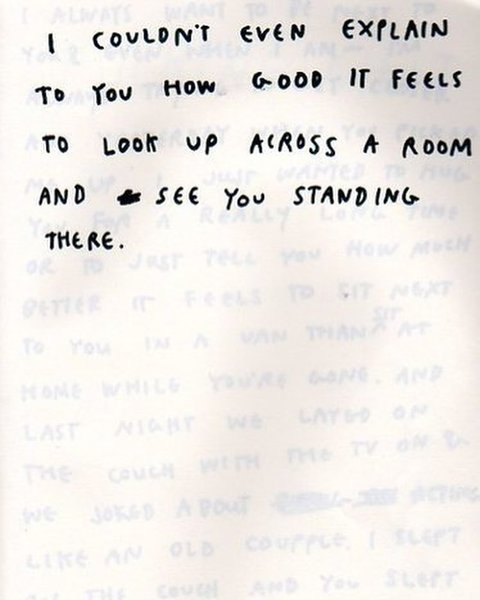 I COULDN'T EVEN EXPLAIN
TO YOU HOW GOOD IT FEELS
TO LOOK UP ACROSS A ROOM
AND SEE YOU STANDING
THERE.
I ALWAYS WANT TO BE NEXT TO
YOU & EVEN WHEN I AM
ALWAYS CLOSER
YESTERDAY WHEN YOU PICKED
ME UP, I JUST WANTED TO HUG
YOU FOR A REALLY LONG TIME
OR TO JUST TELL YOU HOW MUCH
BETTER IT FEELS TO SIT NEXT
TO YOU IN A VAN THAN SIT AT
HOME WHILE YOU'RE GONE. AND
LAST NIGHT WE LAYED ON
THE COUCH WITH THE TV ON &
WE JOKED ABOUT ACTING
LIKE AN OLD COUPPLE. I SLEPT
ON THE COUCH AND YOU SLEPT